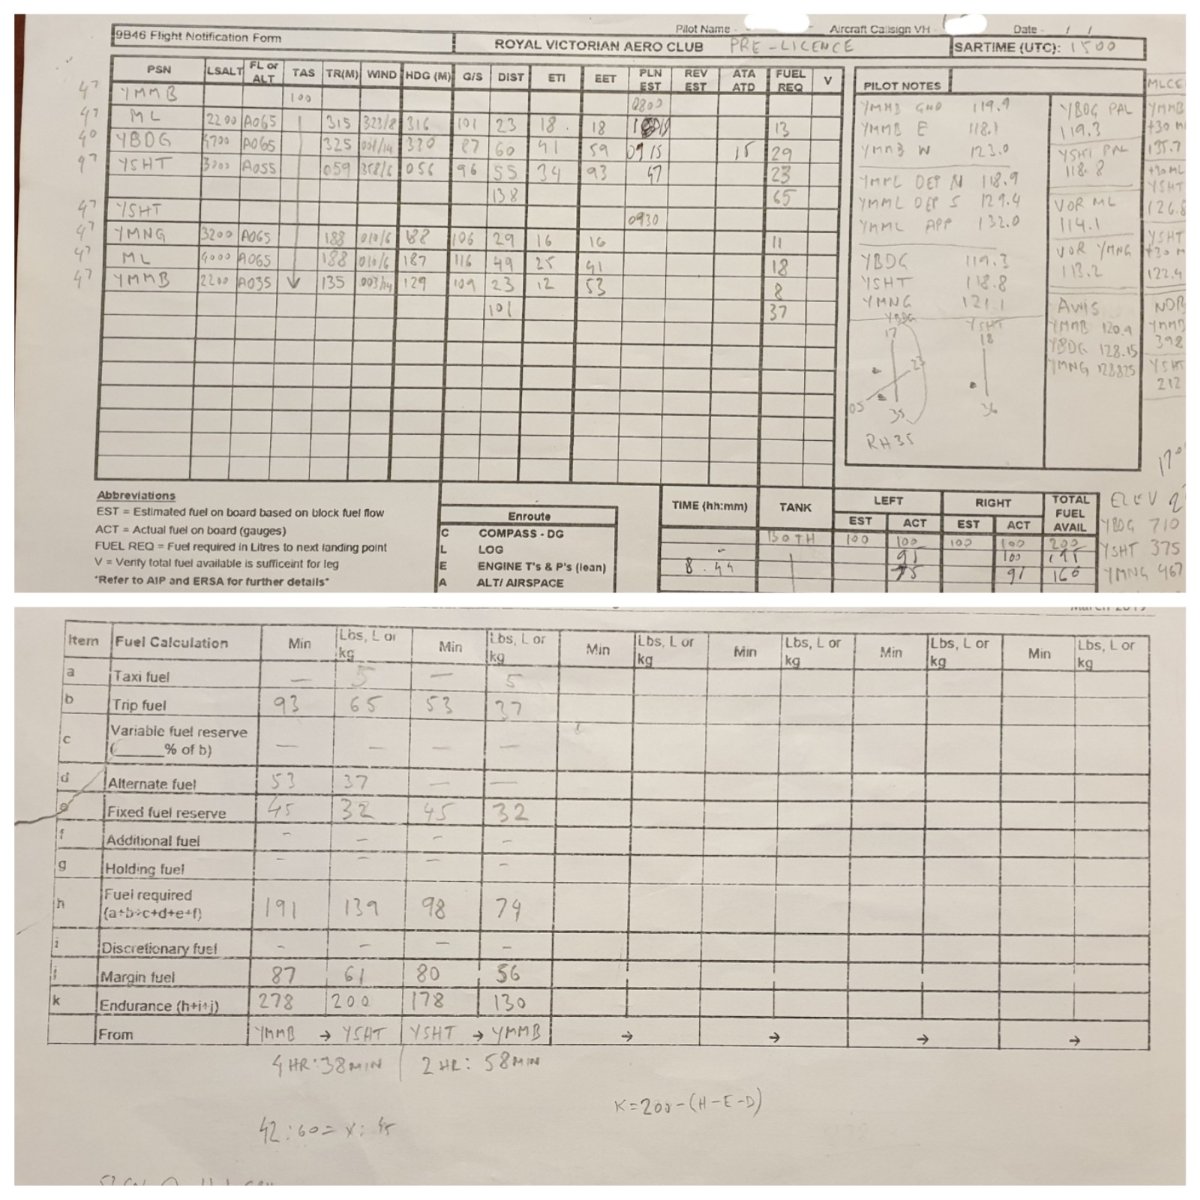 9B46 Flight Notification Form
Pilot Name -
Aircraft Callsign VH -
Date - / /
ROYAL VICTORIAN AERO CLUB PRE-LICENCE
SARTIME (UTC): 1500
PSN LSALT FL or ALT TAS TR(M) WIND HDG (M) G/S DIST ETI EET PLN EST REV EST ATA ATD FUEL REQ V
47 YMMB 100 0800
47 ML 2200 A065 315 323/8 316 101 23 18 18 13
40 YBDG 4700 A065 325 001/14 330 87 60 41 59 0915 15 29
97 YSHT 3200 A055 059 358/6 056 96 55 34 93 47 23
138 65
47 YSHT 0930
47 YMNG 3200 A065 188 010/6 188 106 29 16 16 11
47 ML 4000 A065 188 010/6 187 116 49 25 41 18
47 YMMB 2200 A035 135 003/14 129 109 23 12 53 8
101 37
PILOT NOTES
YMMB GND 119.9
YMMB E 118.1
YMMB W 123.0
YMML DEP N 118.9
YMML DEP S 129.4
YMML APP 132.0
YBDG 119.3
YSHT 118.8
YMNG 121.1
YBDG
17
23
05
35
RH35
YSHT
18
36
YBDG PAL
119.3
YSHT PAL
118.8
VOR ML
114.1
VOR YMNG
113.2
AWIS
YMMB 120.9
YBDG 128.15
YMNG 128825
YMMB
135.7
YSHT
126.8
YSHT
122.4
NDB
YMMB
398
YSHT
212
Abbreviations
EST = Estimated fuel on board based on block fuel flow
ACT = Actual fuel on board (gauges)
FUEL REQ = Fuel required in Litres to next landing point
V = Verify total fuel available is sufficeint for leg
*Refer to AIP and ERSA for further details*
Enroute
C COMPASS - DG
L LOG
E ENGINE T's & P's (lean)
A ALT/ AIRSPACE
TIME (hh:mm) TANK LEFT RIGHT TOTAL FUEL AVAIL
EST ACT EST ACT
BOTH 100 100 100 100 200
- 91 100 191
8.44 75 91 166
ELEV
YBDG 710
YSHT 375
YMNG 467
Item Fuel Calculation Min Lbs, L or kg Min Lbs, L or kg Min Lbs, L or kg Min Lbs, L or kg Min Lbs, L or kg Min Lbs, L or kg
a Taxi fuel — 5 — 5
b Trip fuel 93 65 53 37
c Variable fuel reserve (______% of b) — — — —
d Alternate fuel 53 37 — —
e Fixed fuel reserve 45 32 45 32
f Additional fuel - - - -
g Holding fuel - - - -
h Fuel required (a+b+c+d+e+f) 191 139 98 74
i Discretionary fuel - - - -
j Margin fuel 87 61 80 56
k Endurance (h+i+j) 278 200 178 130
From YMMB → YSHT YSHT → YMMB → → → →
4 HR:38MIN 2 HR: 58MIN
K=200-(H-E-D)
42:60=x:45